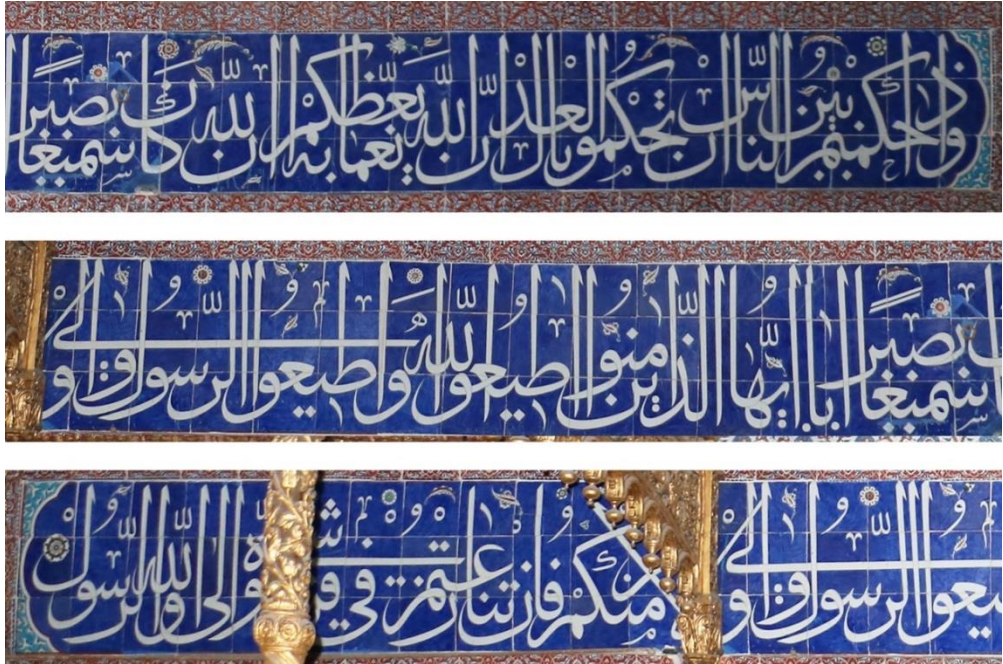 واذا حكمتم بين الناس ان تحكموا بالعدل ان الله نعما يعظكم به ان الله كان سميعا بصيرا
سميعا بصيرا يا ايها الذين امنوا اطيعوا الله واطيعوا الرسول واولي
يعوا الرسول واولي منكم فان تنازعتم في الى الله والرسول